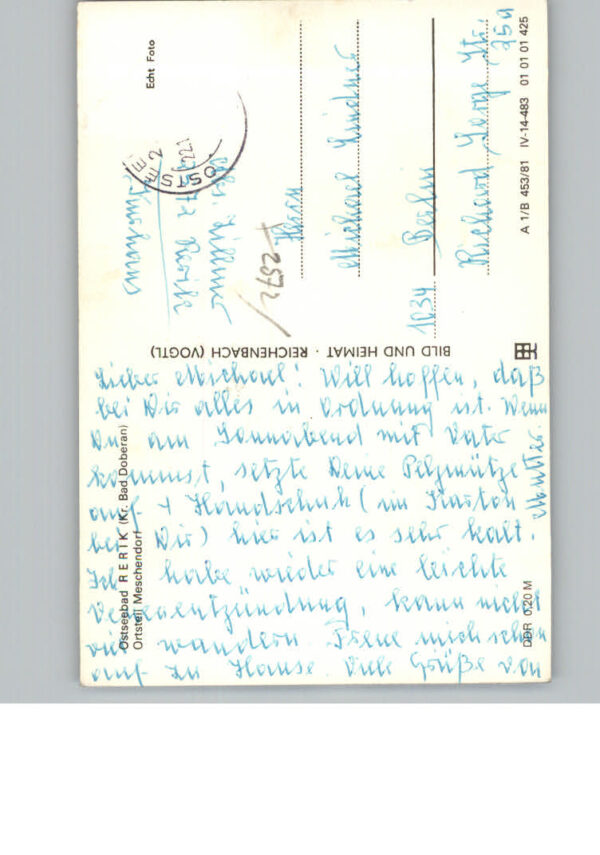 Lieber Michael! Will hoffen, daß
bei Dir alles in Ordnung ist. Wenn
Du am Sonnabend mit Vater
kommst, setzte Deine Pelzmütze
auf + Handschuh (im Karton
bei Dir) hier ist es sehr kalt.
Ich habe wieder eine leichte
Venenentzündung, kann nicht
viel wandern. Freue mich schon
auf zu Hause. Viele Grüße von
Mutter.
Ostseebad RERIK (Kr. Bad Doberan)
Ortsteil Meschendorf
DDR 0,20 M
BILD UND HEIMAT · REICHENBACH (VOGTL)
Echt Foto
OSTSEE 2
Rerik
Herrn
Michael Lindner
1034 Berlin
Richard Sorge Str.
25a
A 1/B 453/81 IV-14-483 01 01 01 425